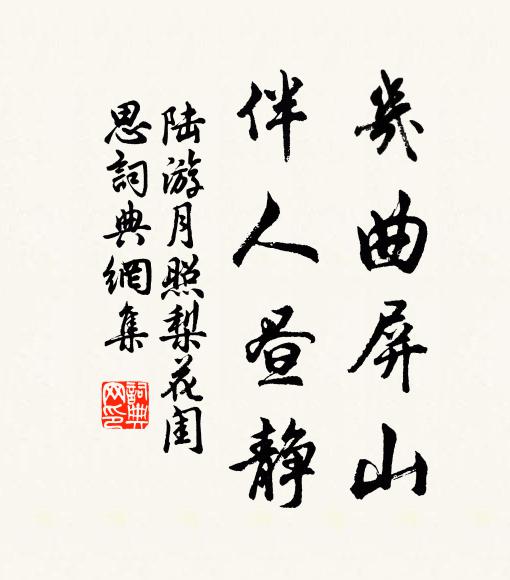 幾曲屏山
伴人昼静
陆游月照梨花闺
思詞典網集
詞典网印